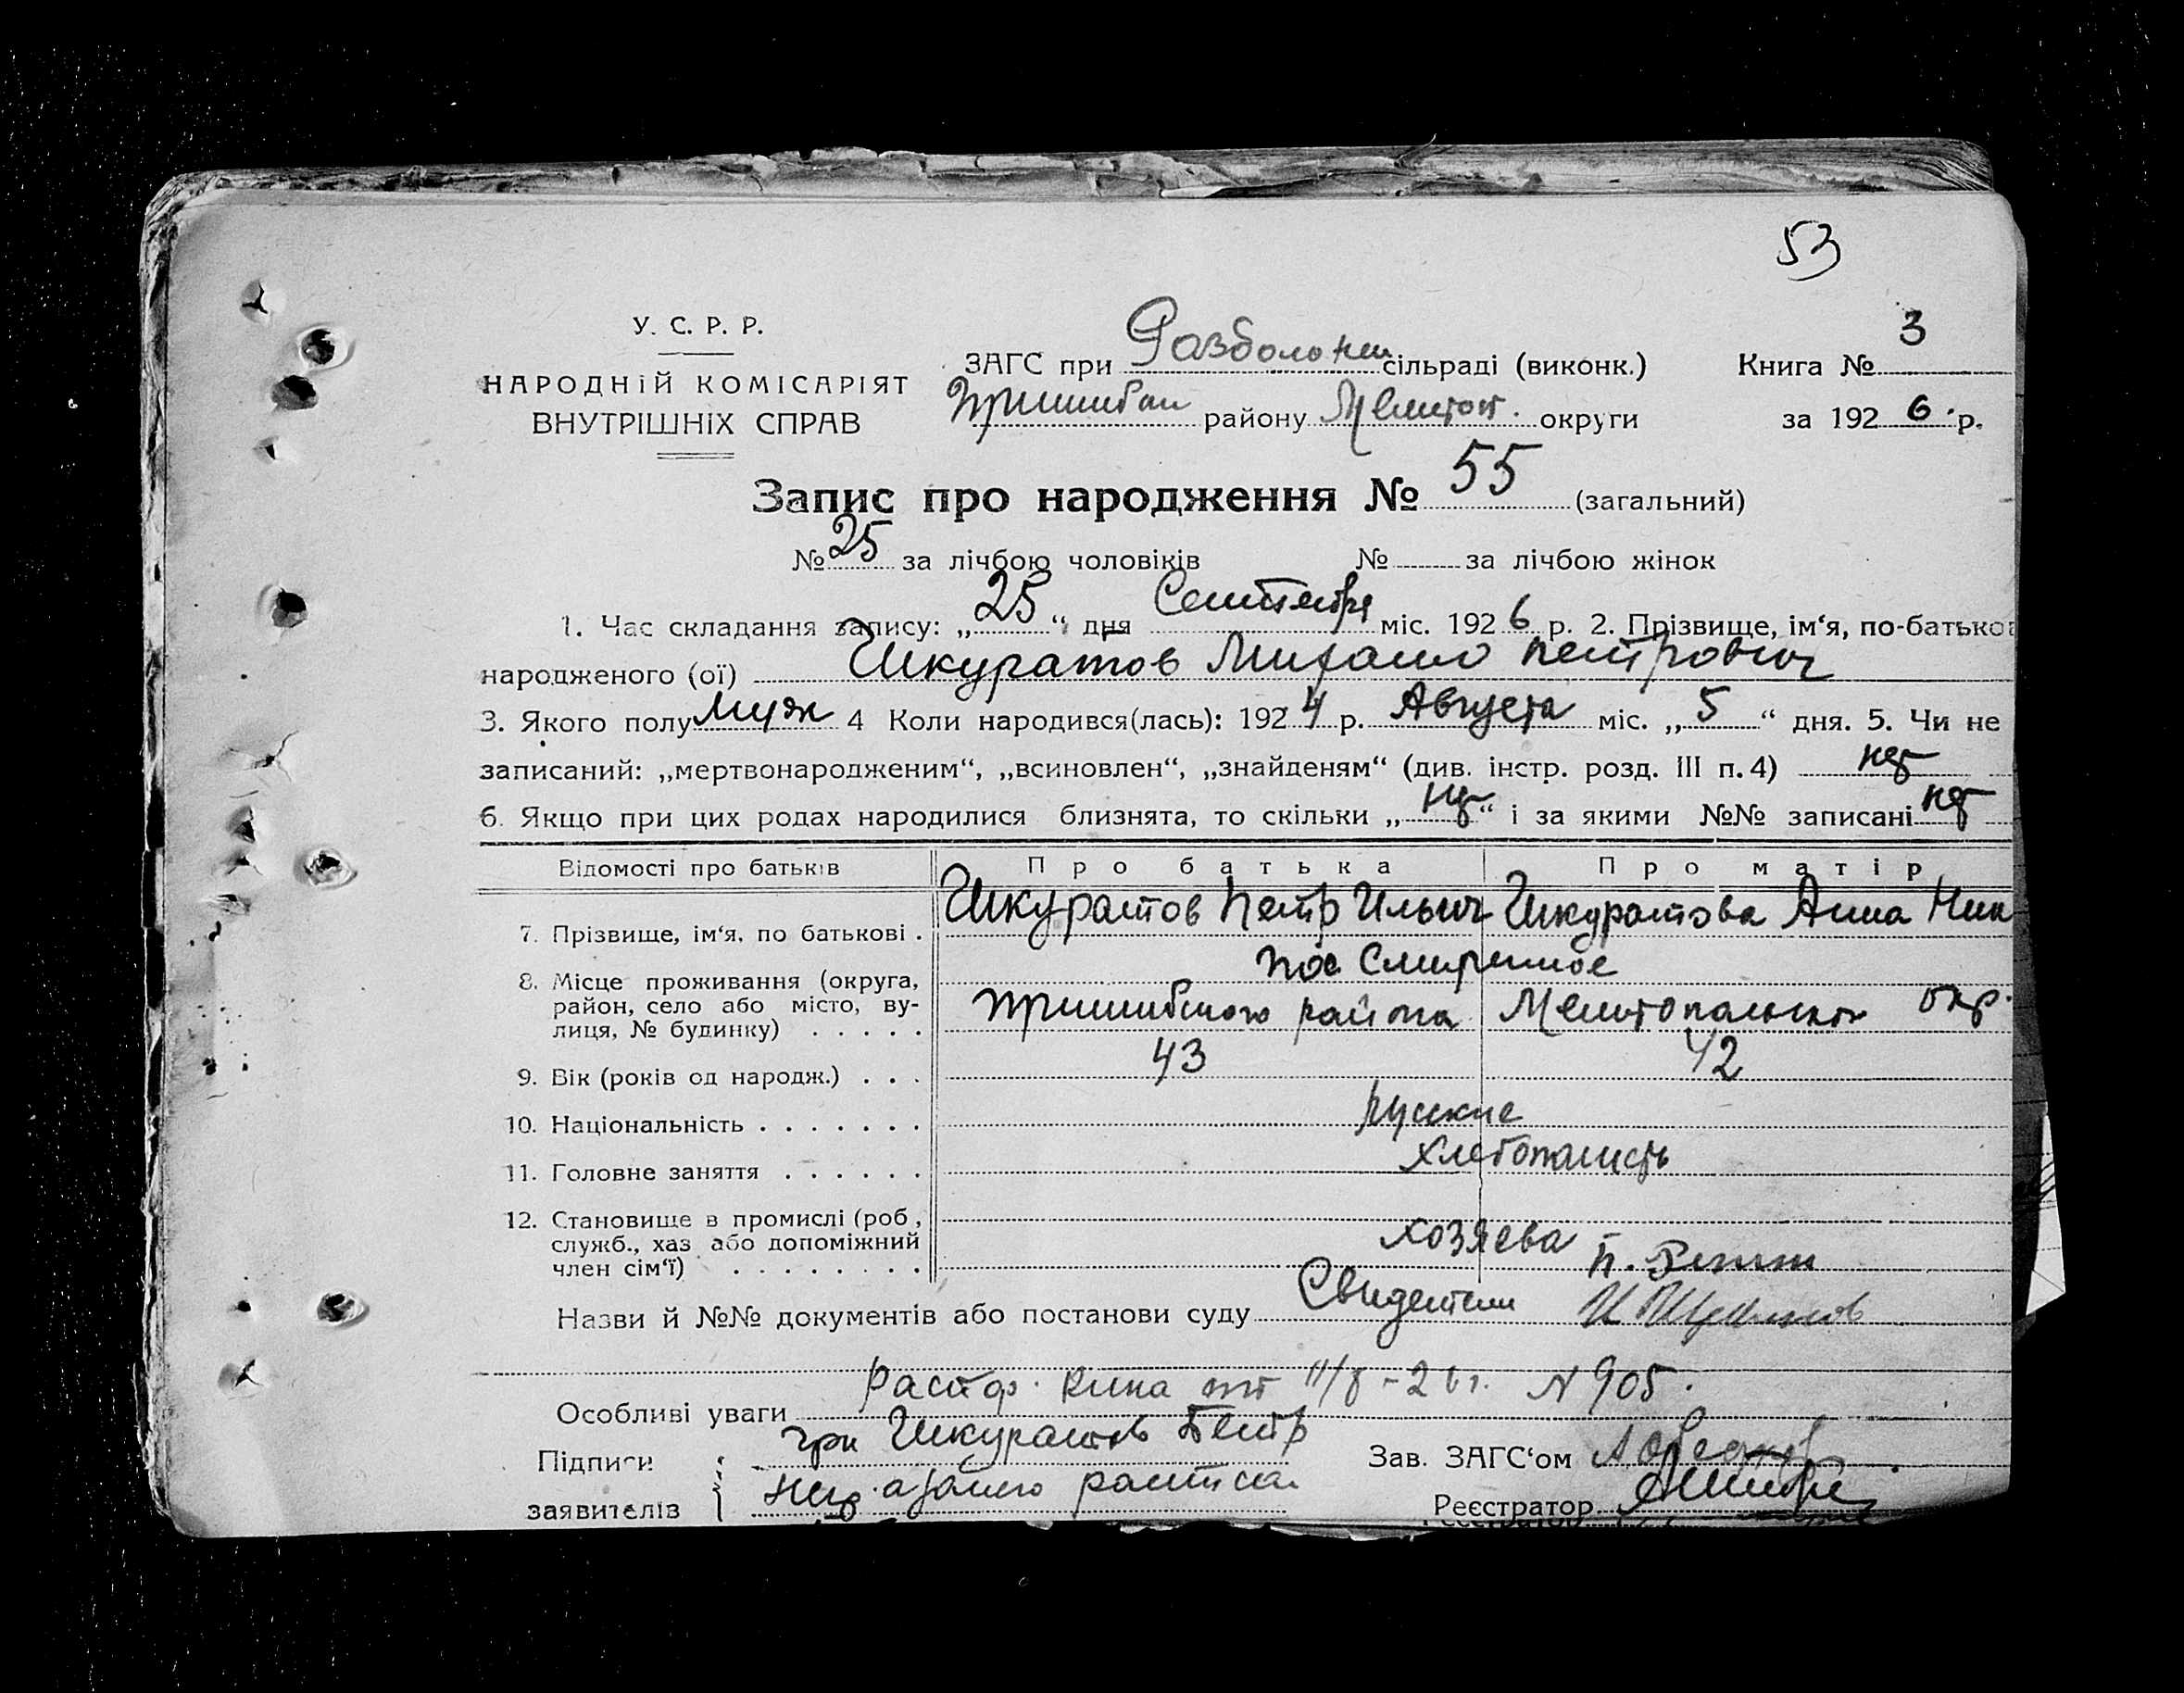 53
У. С. Р. Р.
НАРОДНІЙ КОМІСАРІЯТ
ВНУТРІШНІХ СПРАВ
ЗАГС при сільраді (виконк.) Книга № 3
Пришиб району Мелитоп. округи за 1926 р.
Запис про народження № 55 (загальний)
№ 25 за лічбою чоловіків № за лічбою жінок
1. Час складання запису: „25“ дня Сентября міс. 1926 р. 2. Прізвище, ім‘я, по-батьков
народженого (ої) Шкуратов Михаил Петрович
3. Якого полу Муж 4 Коли народився(лась): 1924 р. Августа міс. „5“ дня. 5. Чи не
записаний: „мертвонародженим“, „всиновлен“, „знайденям“ (див. інстр. розд. III п. 4) нет
6. Якщо при цих родах народилися близнята, то скільки „нет“ і за якими №№ записані нет
Відомості про батьків Про батька Про матір
7. Прізвище, ім‘я, по батькові . Шкуратов Петр Ильич Шкуратова Анна Ник
8. Місце проживання (округа, район, село або місто, ву-
лиця, № будинку) . . . . . пос Смиренное
Пришибского района Мелитопольской окр.
9. Вік (років од народж.) . . . 43 42
10. Національність . . . . . . . русские
11. Головне заняття . . . . . . хлебопашество
12. Становище в промислі (роб., служб., хаз або допоміжний
член сім‘ї) . . . . . . . . хозяева
Назви й №№ документів або постанови суду Свидетели
Особливі уваги Распор. от 11/8-26 г. N 905.
Підписи
заявителів
гр Шкуратов Петр
Зав. ЗАГС‘ом
Реєстратор